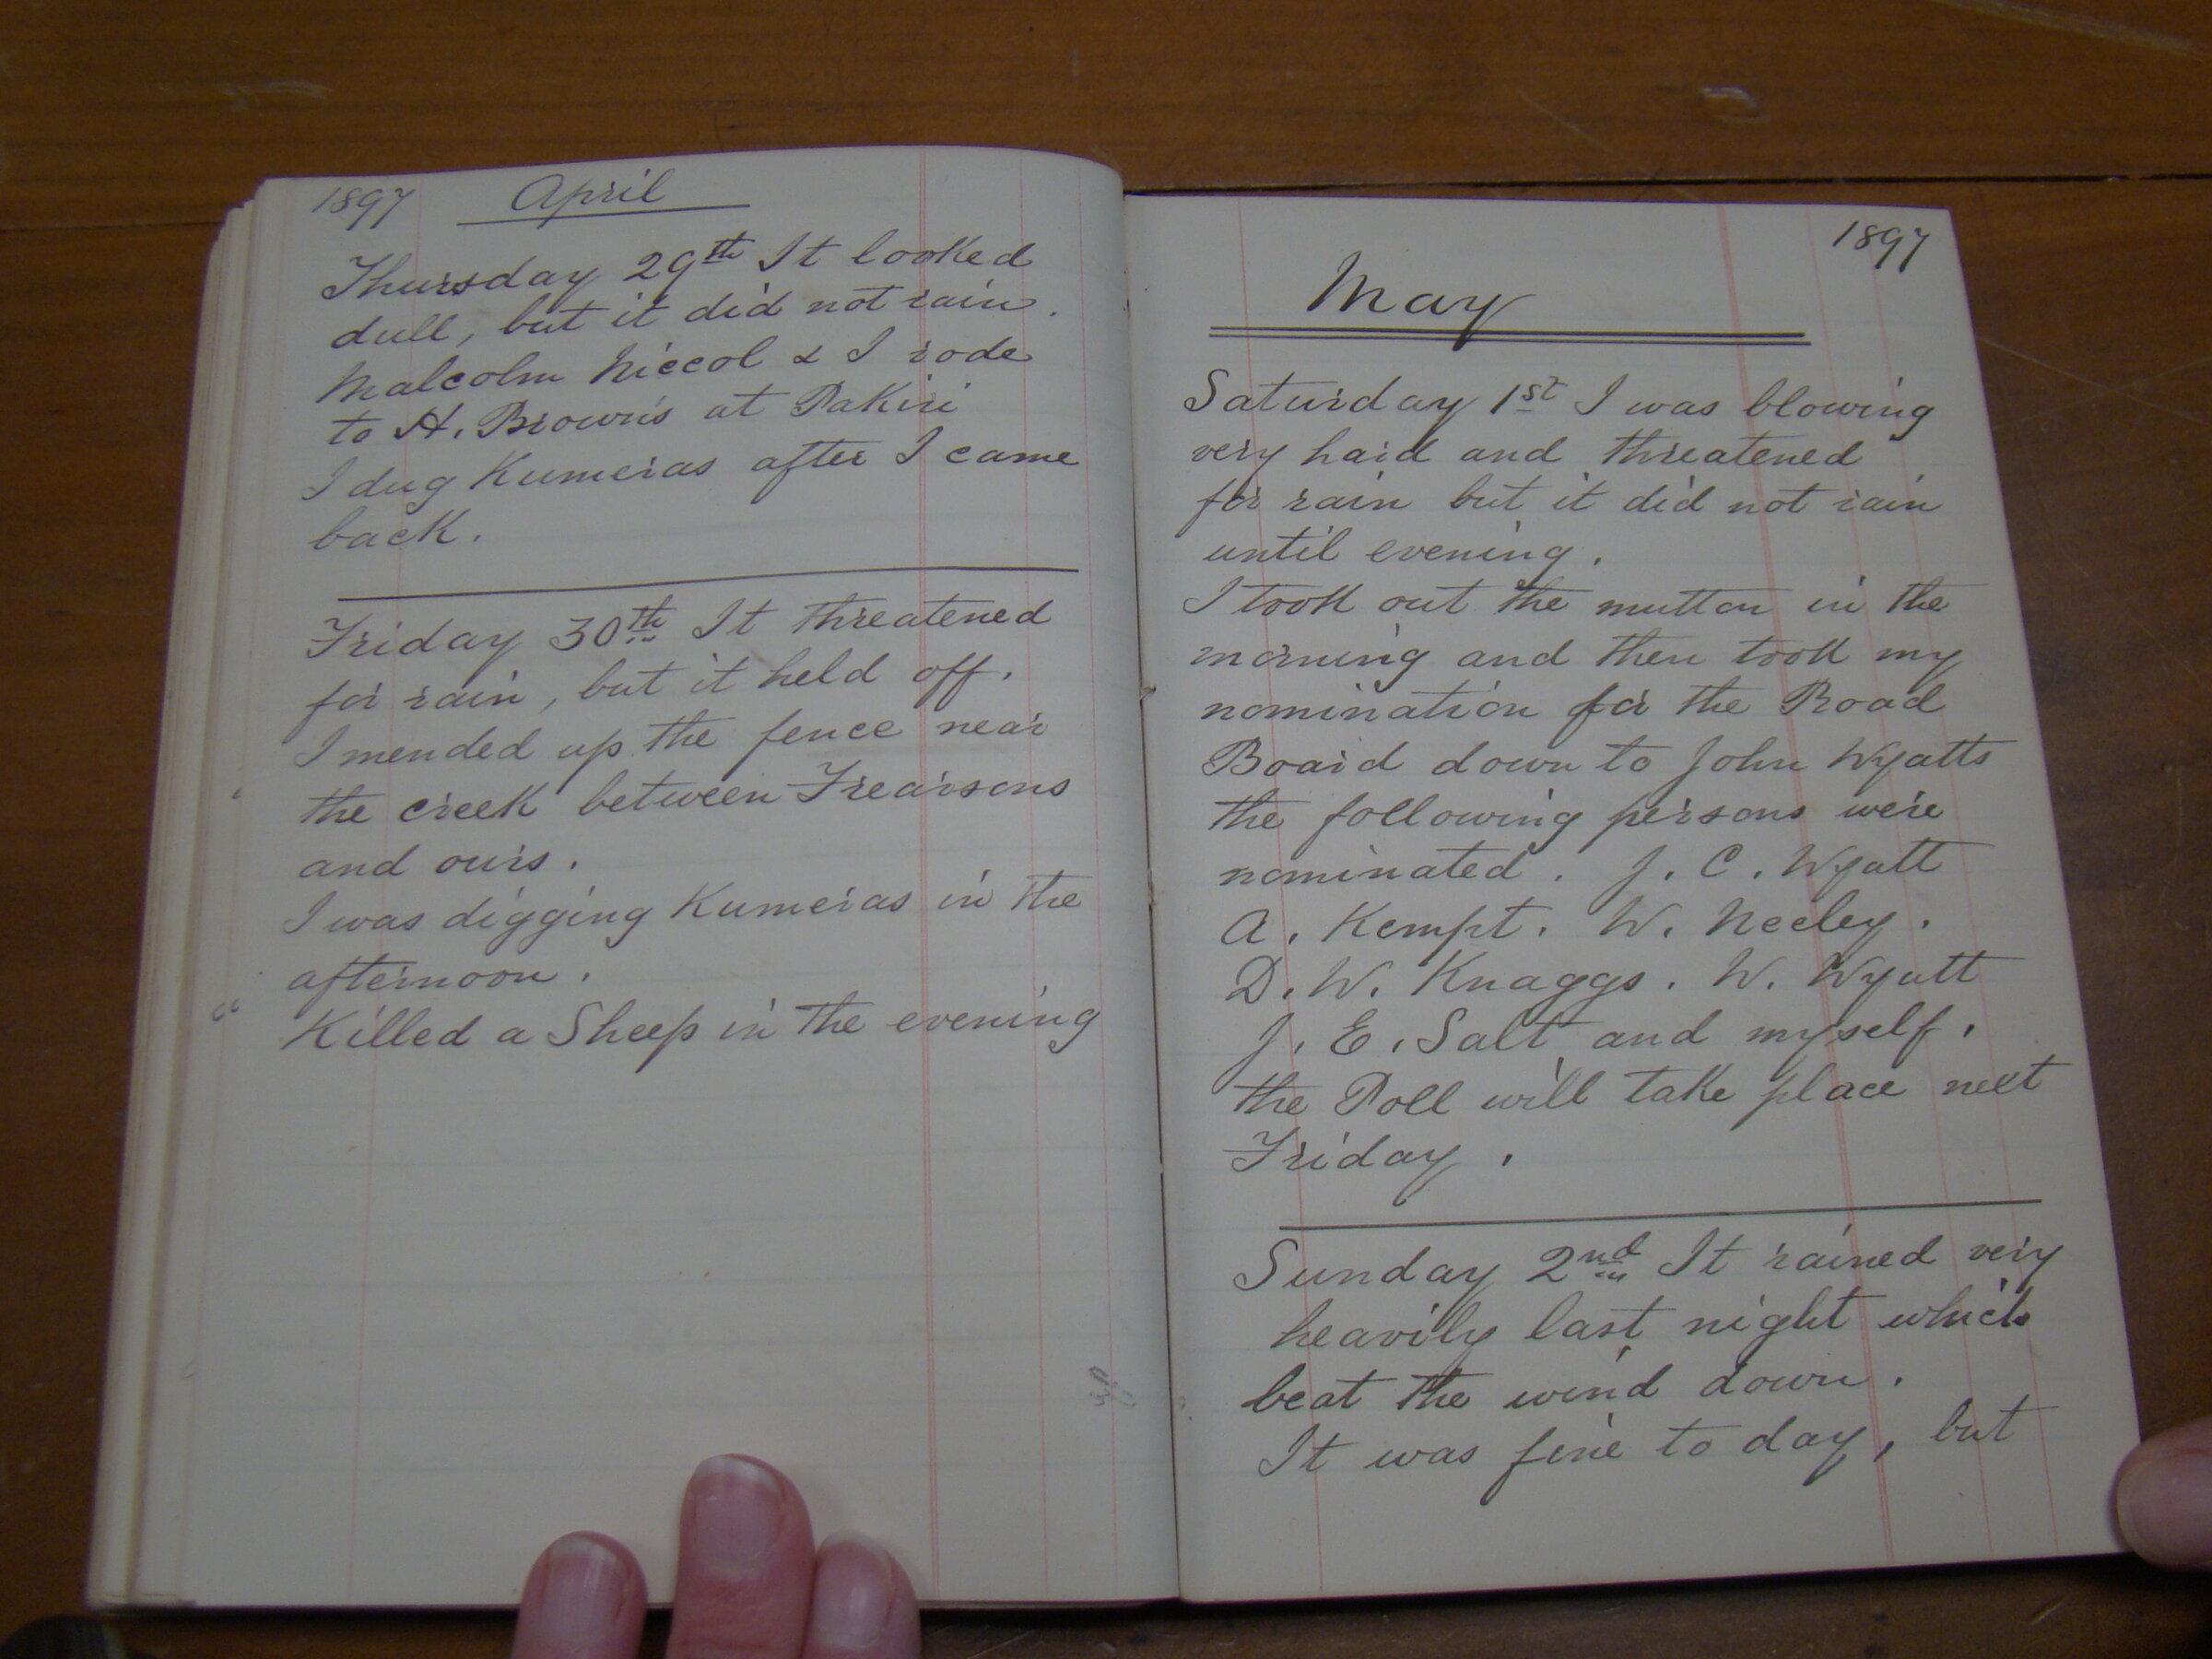 1897 April
Thursday 29th It looked
dull, but it did not rain.
Malcolm Niccol & I rode
to H. Brown's at Pakiri
I dug Kumeras after I came
back.
Friday 30th It threatened
for rain, but it held off.
I mended up the fence near
the creek between Frearsons
and ours.
I was digging Kumeras in the
afternoon.
Killed a Sheep in the evening
1897
May
Saturday 1st I was blowing
very hard and threatened
for rain but it did not rain
until evening.
I took out the mutton in the
morning and then took my
nomination for the Road
Board down to John Wyatts
the following persons were
nominated. J. C. Wyatt
A. Kempt. W. Neeley.
D. W. Knaggs. W. Wyatt
J. E. Salt and myself.
the Poll will take place next
Friday.
Sunday 2nd It rained very
heavily last night which
beat the wind down.
It was fine to day, but